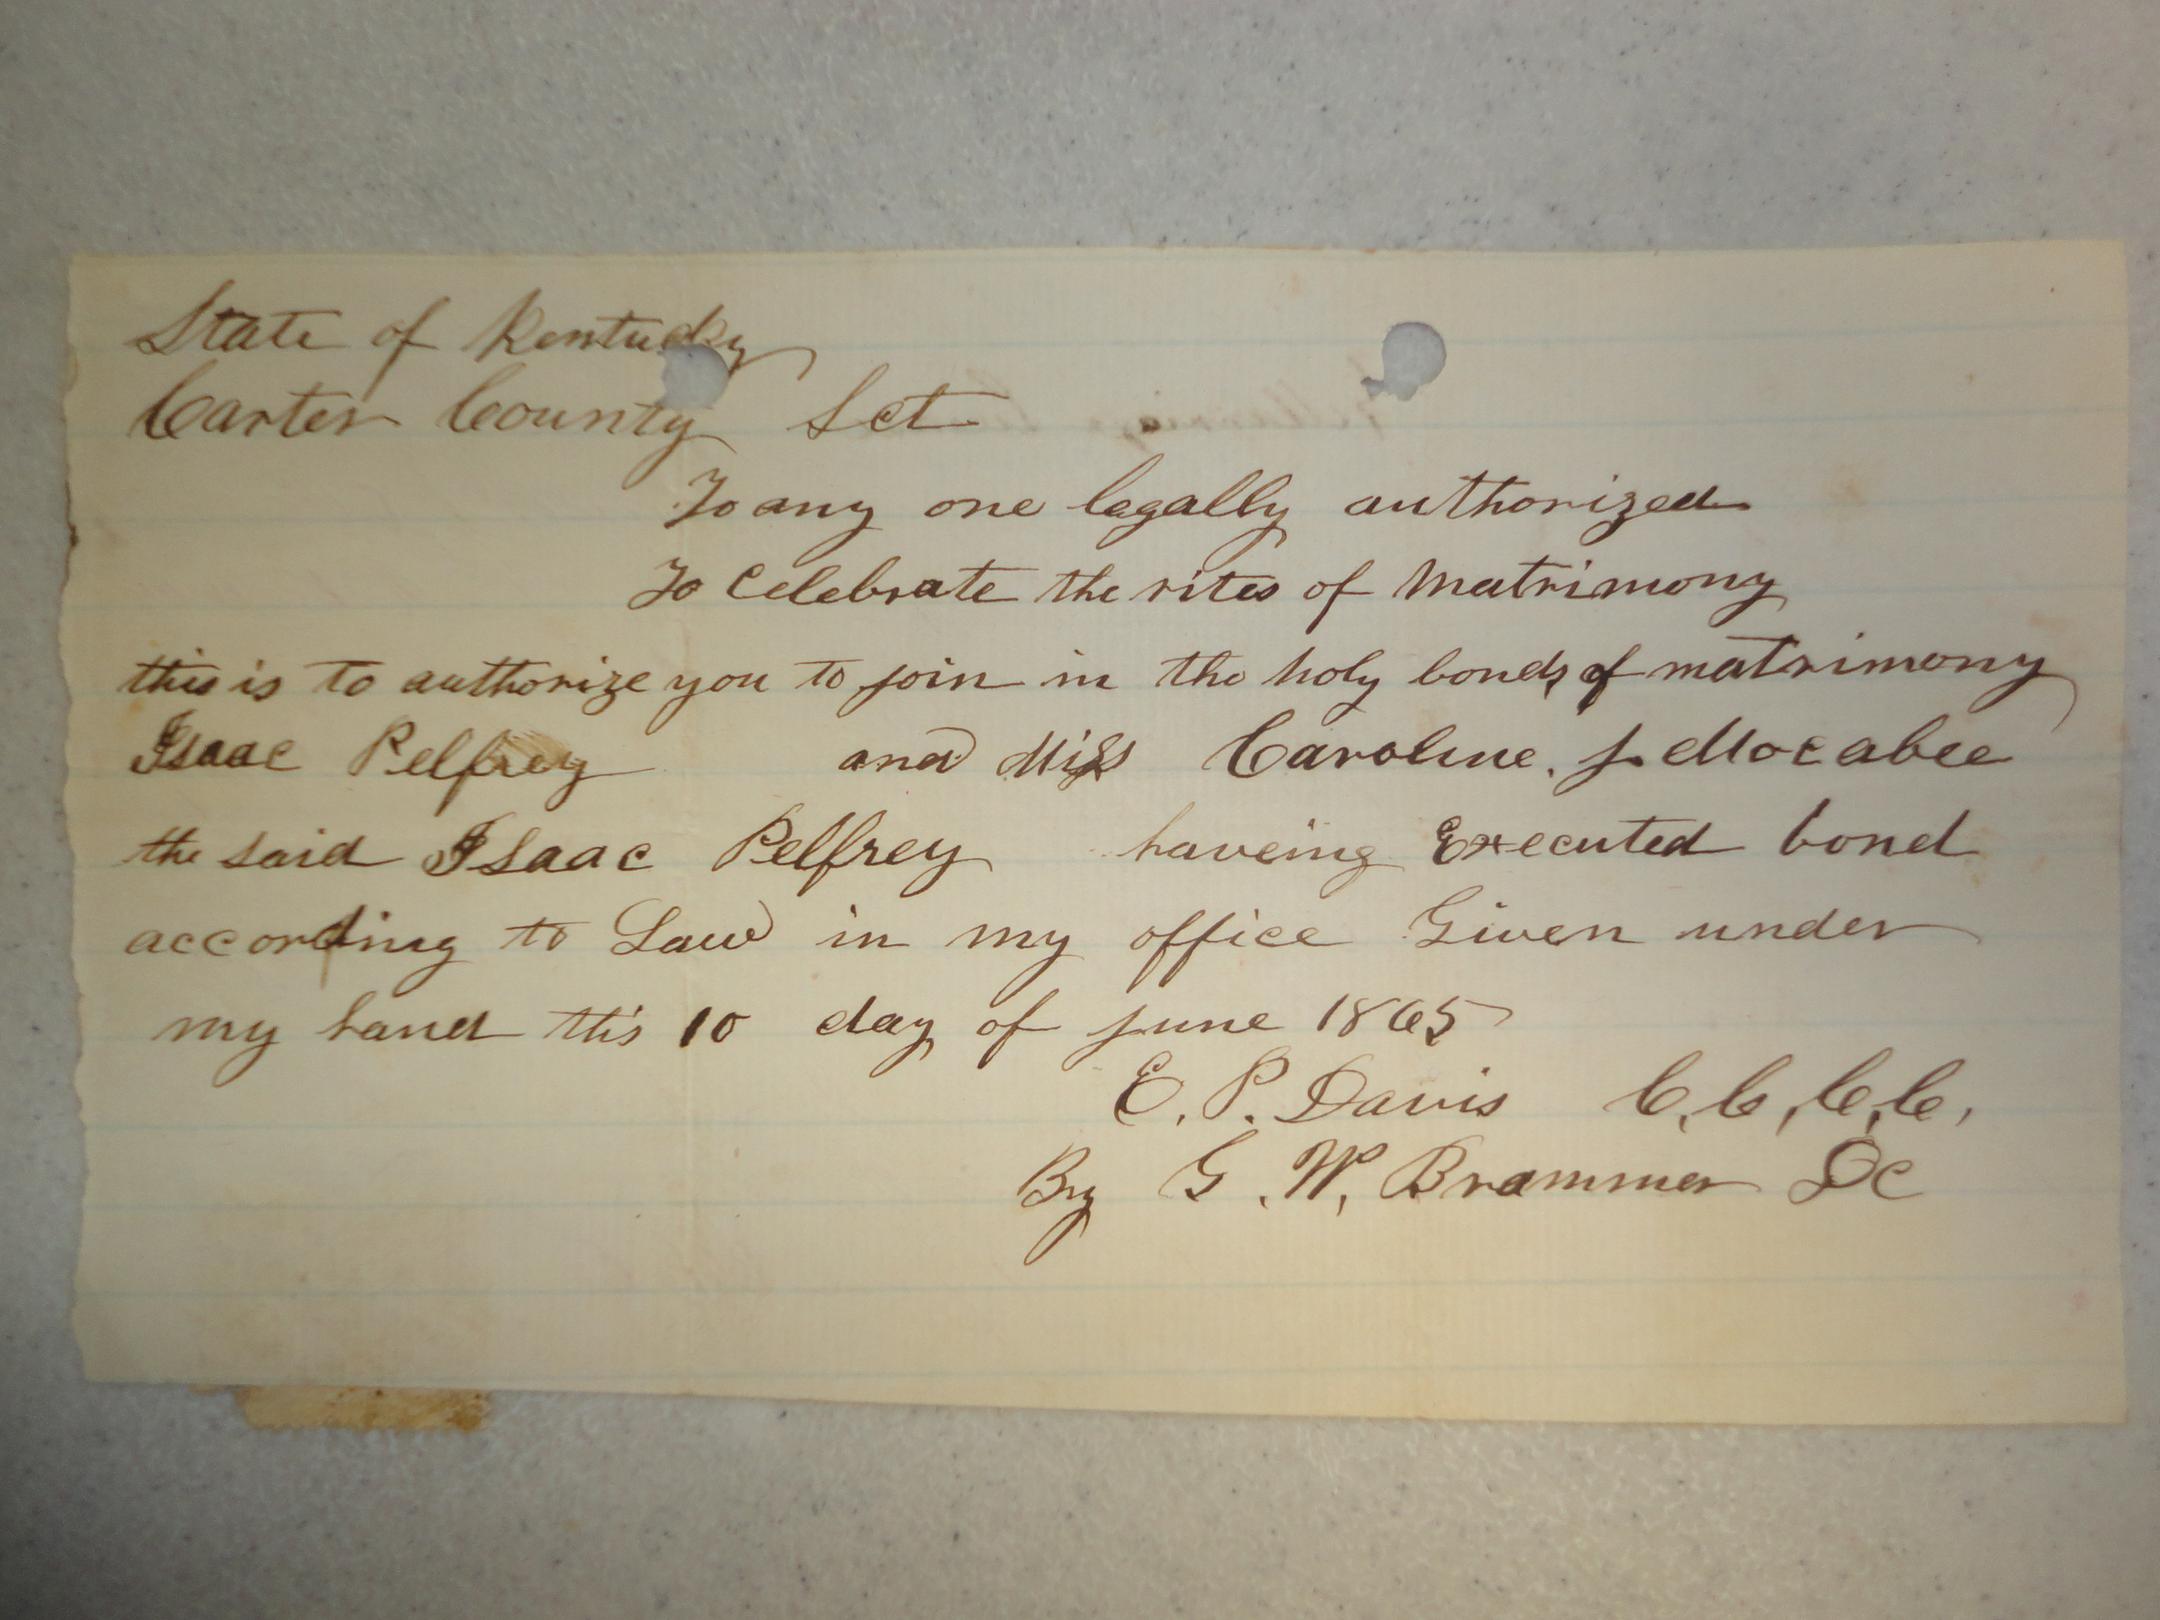 State of Kentucky
Carter County Sct
To any one legally authorized
To Celebrate the rites of Matrimony
this is to authorize you to join in the holy bonds of matrimony
Isaac Pelfrey and Miss Caroline. J. Mocabee
the said Isaac Pelfrey haveing Executed bond
according to Law in my office Given under
my hand this 10 day of June 1865
E. P. Davis C, C, C, C,
By G. W. Brammer DC